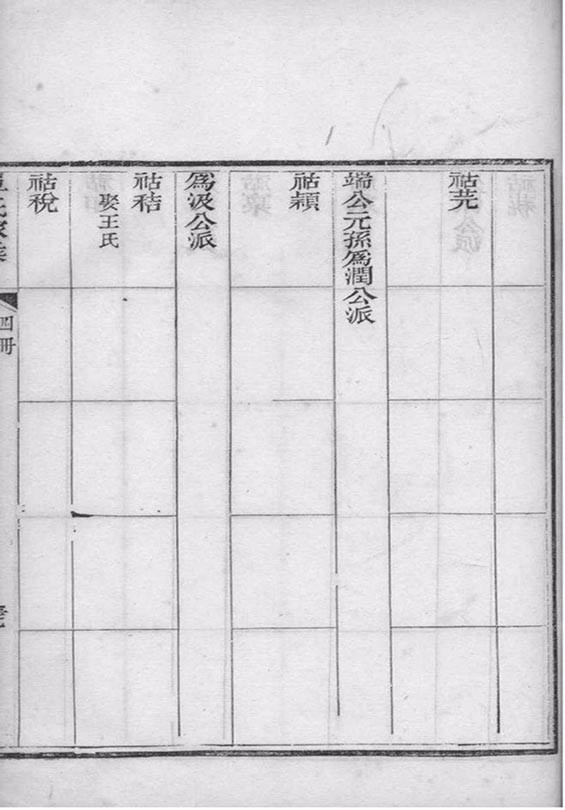 祜芫
端公元孫爲潤公派
祜穎
爲汲公派
祜秸
娶王氏
祜稅
四冊